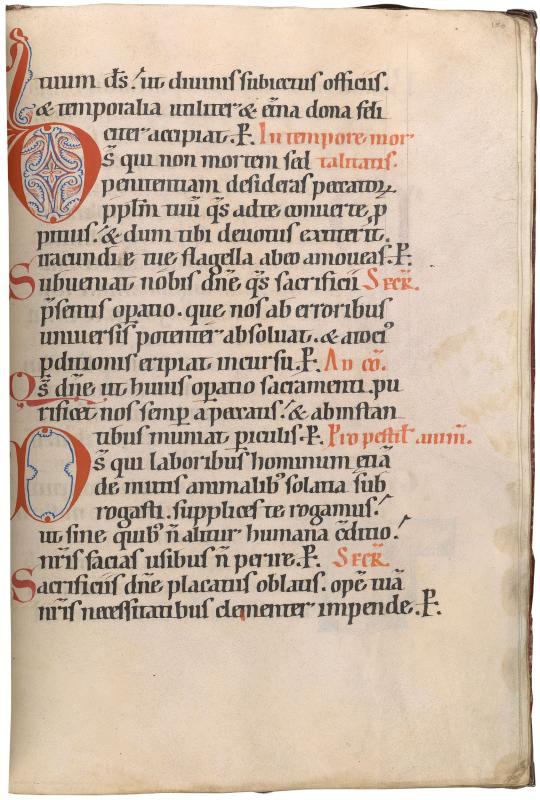 tuum d̄s. ut diuinis subiectus officiis.
& temporalia utiliter & et̄na dona feli
citer accipiat. P̱. In tempore mor
s̄ qui non mortem sed talitatis.
penitentiam desideras peccatoꝝ
pplm̄ tuū q̄s ad te conuerte, p̱
pitius. & dum tibi deuotus extiterit.
iracundie tue flagella ab eo amoueas. P̱.
Subueniat nobis dn̄e q̄s sacrificii Secr̄.
p̄sentis op̱atio. que nos ab erroribus
uniuersis potenter absoluat. & a toci᾿
p̱ditionis eripiat incursu. P̱. Ad cō.
Q̄s dn̄e ut huius op̱atio sacramenti. pu
rificet nos semp̱ a peccatis. & ab instan
tibus muniat p̱iculis. P̱. Pro pestil̄ anim̄.
D̄s qui laboribus hominum etiā
de mutis animalib᾿ solatia sub
rogasti. supplices te rogamus.
ut sine quib᾿ n̄ alitur humana c̄ditio.
nr̄is facias usibus n̄ perire. P̱. Secr̄.
Sacrificiis dn̄e placatus oblatis. opē tuā
nr̄is necessitatibus clementer impende. P̱.